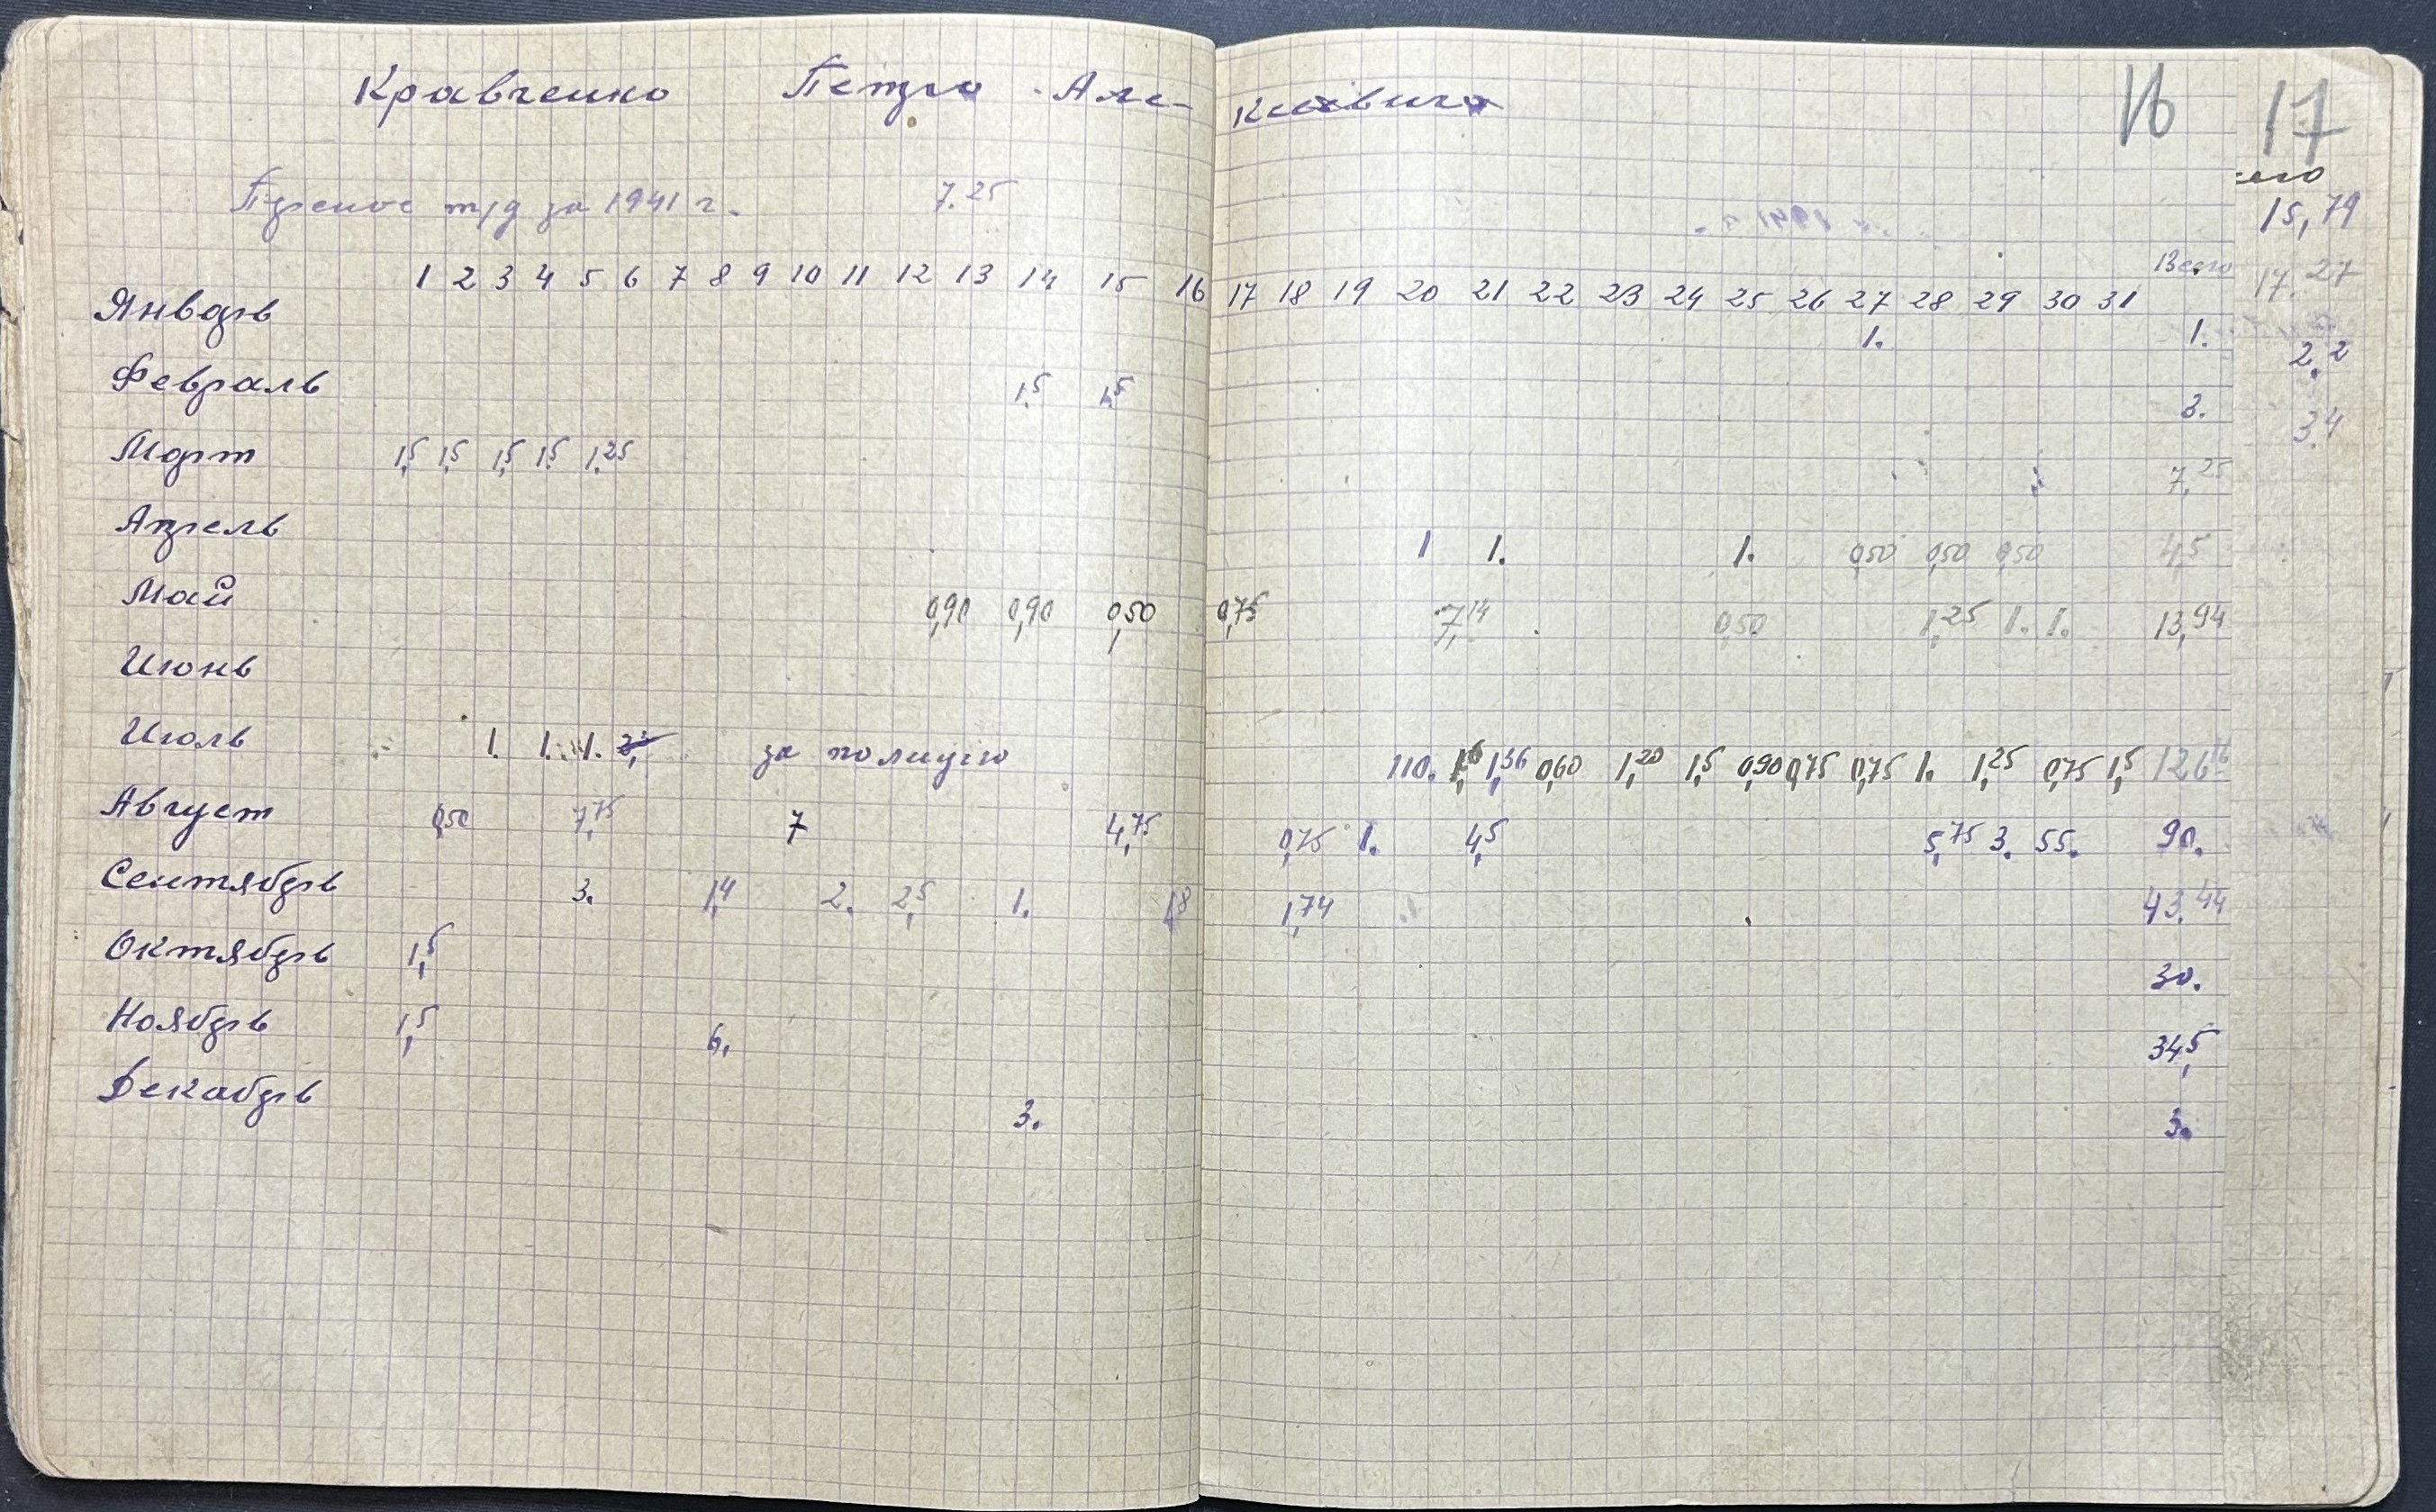 Кравченко Петро Але-ксеевича 16 17
его
Перенос т/д за 1941 г. 7.25 15,79
Всего 17.27
1 2 3 4 5 6 7 8 9 10 11 12 13 14 15 16 17 18 19 20 21 22 23 24 25 26 27 28 29 30 31
Январь 1. 1. 2,2
Февраль 1,5 1,5 3. 3.4
Март 1,5 1,5 1,5 1,5 1,25 7,25
Апрель 1 1. 1. 0,50 0,50 0,50 4,5
Май 0,90 0,90 0,50 0,75 7,14 0,50 1,25 1. 1. 13,94
Июнь
Июль 1. 1. 1. за полицию 110. 1,36 0,60 1,20 1,5 0,90 0,75 0,75 1. 1,25 0,75 1,5 126,16
Август 0,50 7,75 7 4,75 0,75 1. 4,5 5,75 3. 55. 90.
Сентябрь 3. 1,4 2. 2,5 1. 1,8 1,74 43,44
Октябрь 1,5 30.
Ноябрь 1,5 6. 34,5
Декабрь 3. 3.